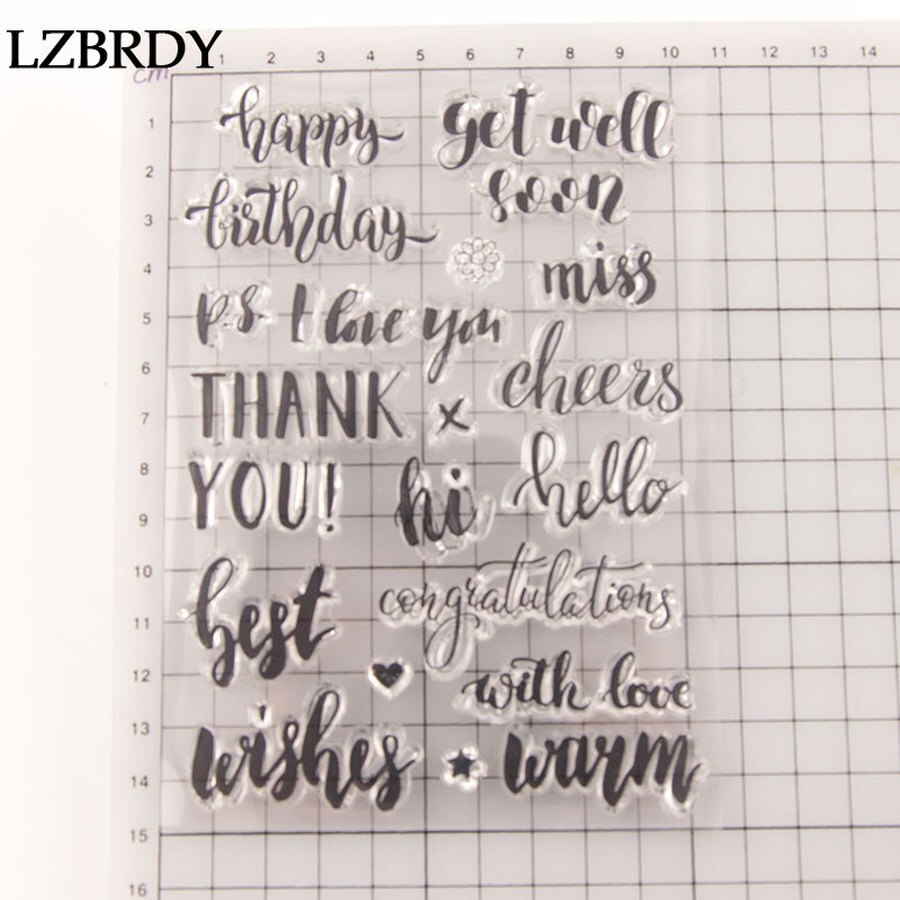 LZBRDY
cm
1 2 3 4 5 6 7 8 9 10 11 12 13 14
1
2
3
4
5
6
7
8
9
10
11
12
13
14
15
16
happy
birthday
get well
soon
miss
p.s. I love you
cheers
THANK
YOU!
x
hi
hello
best
congratulations
with love
wishes
warm